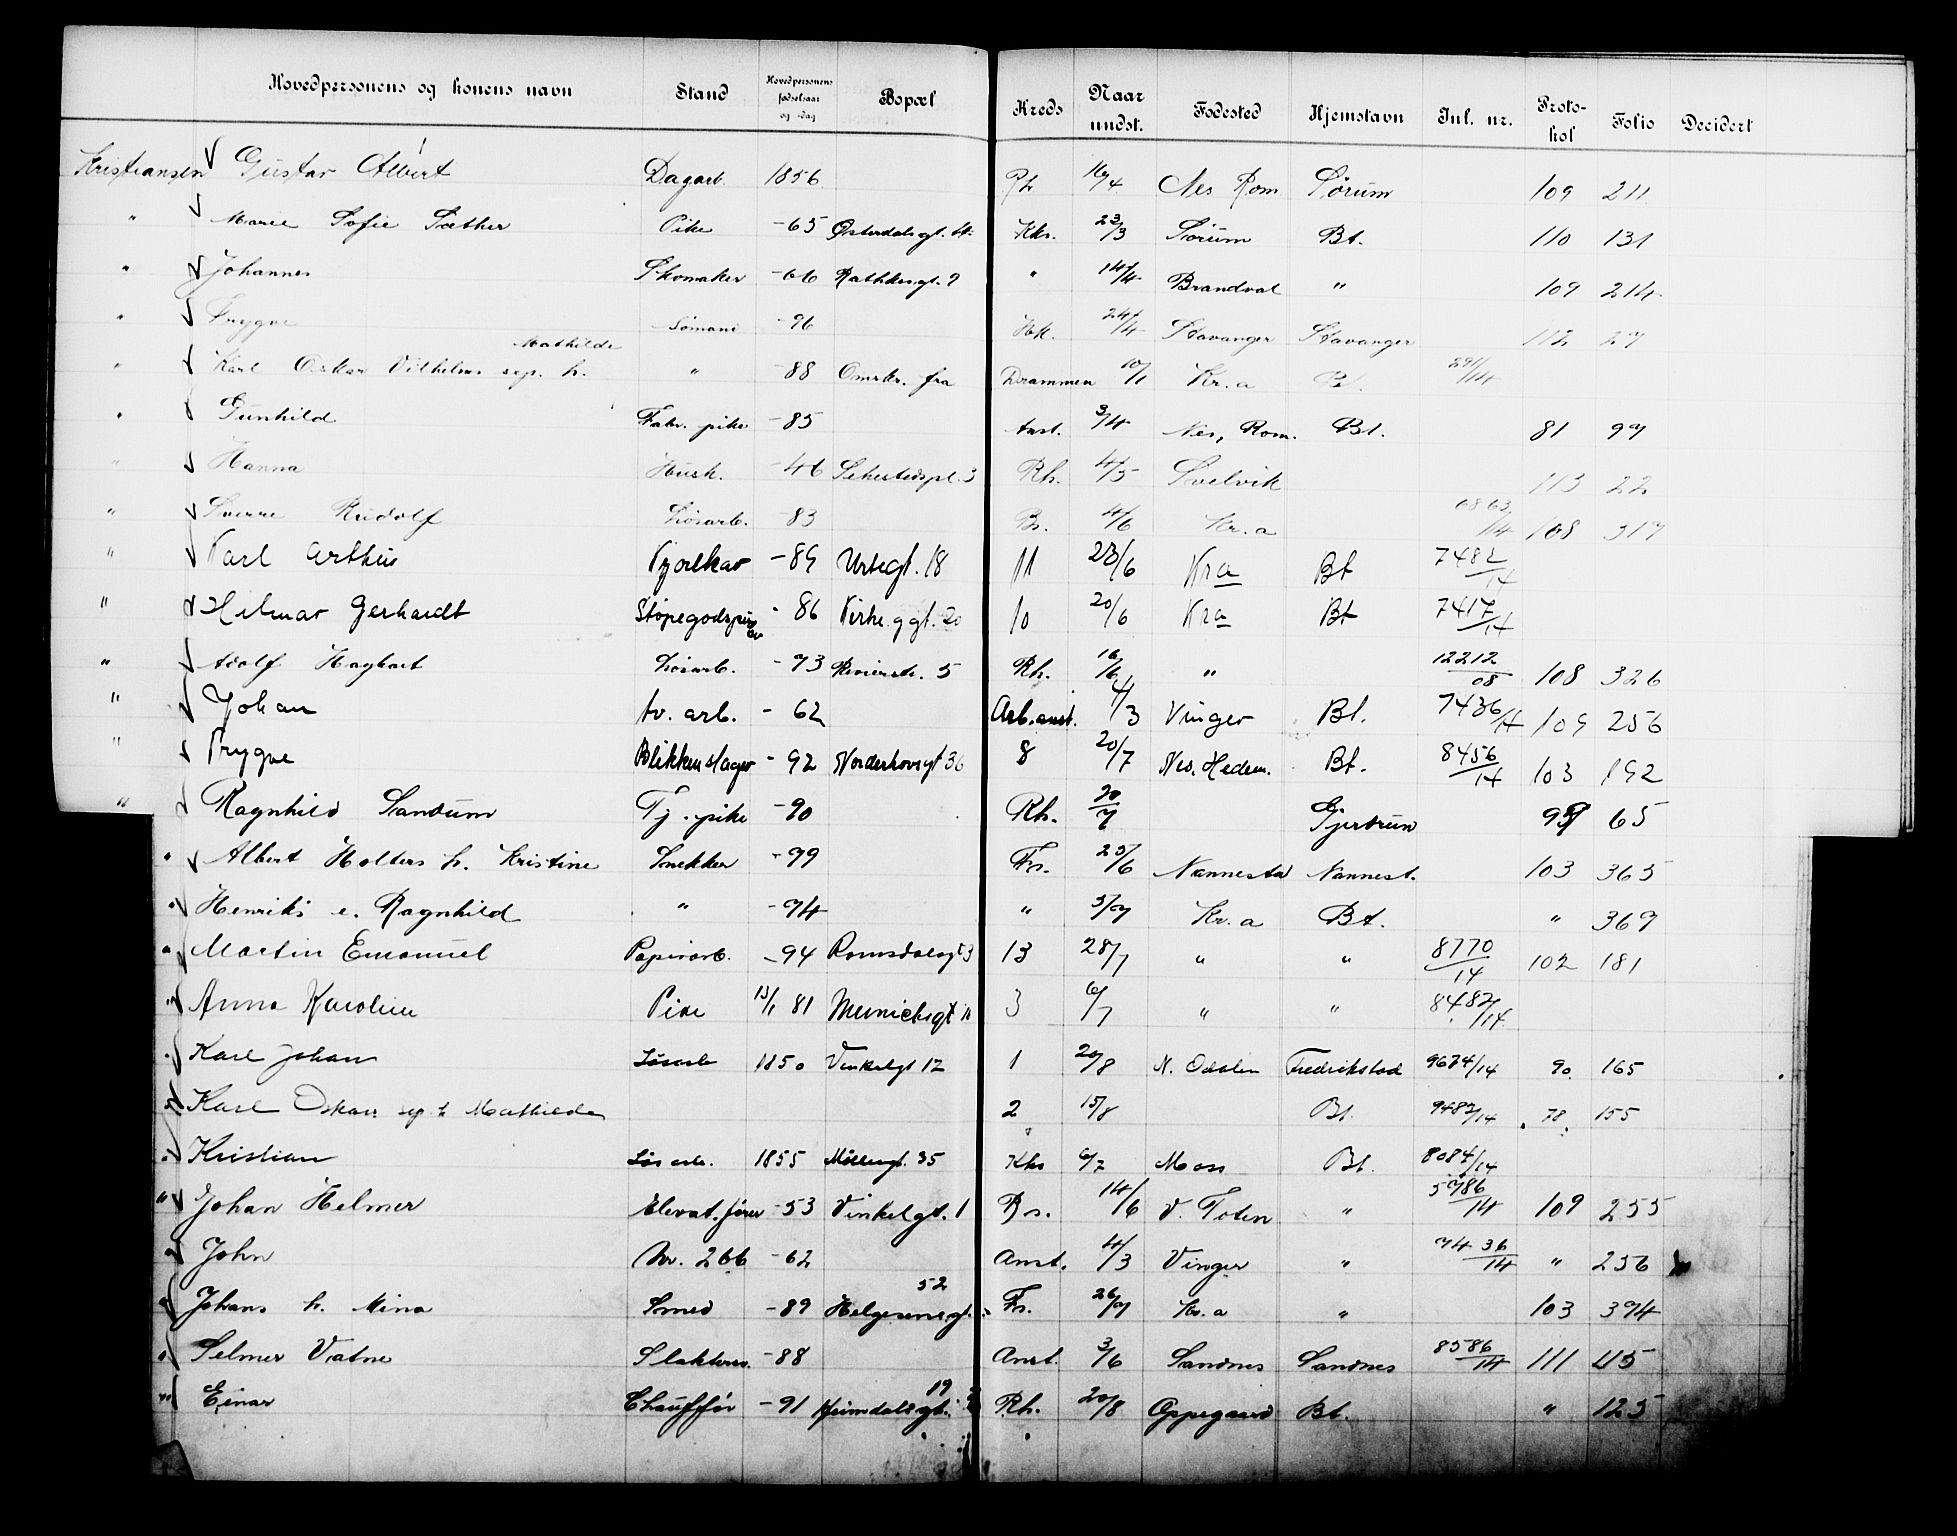 Hovedpersonens og konens navn Stand Hovedpersonens fødselsaar og -dag Bopæl Kreds Naar undst. Fødested Hjemstavn Jnl. nr. Protokol Folio Decidert
Kristiansen Gustav Albert Dagarb. 1856 16/4 Nes Rom. Sørum 109 211
" Marie Sofie Sæther Pike -65 Østerdalsgt. 4 Khs. 23/3 Sørum Bt. 110 131
" Johannes Skomaker -66 Rathkesgt. 9 " 14/4 Brandval " 109 214
" Trygve Sømand -96 24/4 Stavanger Stavanger 112 27
" Karl Oskar Vilhelm sep. h. Mathilde " -88 Omskr. fra Drammen 10/1 Kr.a Bt. 291/14
" Gunhild Fabr. pike -85 Anst. 3/4 Nes, Rom. Bt. 81 97
" Hanna Hush. -46 Sehestedspl. 3 Rh. 4/5 Svelvik 113 22
" Sverre Rudolf Løsarb. -83 Bs. 4/6 Kr.a /14 108 317
" Karl Arthur -89 Urtegt. 18 11 23/6 Kra Bt 7482/14
" Hilmar Gerhardt Støpegodspusser -86 Kirkeggt. 20 10 20/6 Kra Bt 7417/14
" Adolf Haghart Løsarb. -93 Revierstr. 5 Rh. 16/6 " 12212/08 108 326
" Johan tv. arb. -62 Arb.anst. 4/3 Vinger Bt. 7436/14 109 256
" Trygve Blikkenslager -92 Norderhovsgt 36 8 20/7 Nes. Hedem. Bt. 8456/14 103 192
" Ragnhild Sandum Tj. pike -90 Rh. 20/7 Gjerdrum 99 65
" Albert Holters h. Kristine Snekker -99 Fs. 25/6 Nannestad Nannest. 103 365
" Henriks e. Ragnhild " -94 " 3/7 Kr.a Bt. " 369
" Martin Emanuel Papirarb. -94 Romsdalsgt 3 13 28/7 " " 8770/14 102 181
" Anna Karoline Pike 13/1 81 Munichsgt 3 6/7 " " 8482/14
" Karl Johan Løsarb 1850 Vinkelgt 12 1 20/8 N. Odalen Fredrikstad 9674/14 90 165
" Karl Oskar sep h Mathilde 2 15/8 Bt. 9487/14 78 155
" Kristian Løsarb. 1855 Møllergt. 35 Khs 6/7 Moss Bt. 8084/14
" Johan Helmer Elevat.fører -53 Vinkelgt. 1 Bs. 14/6 V. Toten " 5786/14 109 255
" John Nr. 266 -62 Anst. 4/3 Vinger " 7436/14 " 256
" Johans h. Mina Smed -89 Helgesensgt. 52 Fs. 26/7 Kr.a " 103 394
" Selmer Vatne Slakter -88 Anst. 3/6 Sandnes Sandnes 8586/14 111 45
" Einar Chauffør -91 Heimdalsgt. 19 Rh. 20/8 Oppegaard Bt. " 125